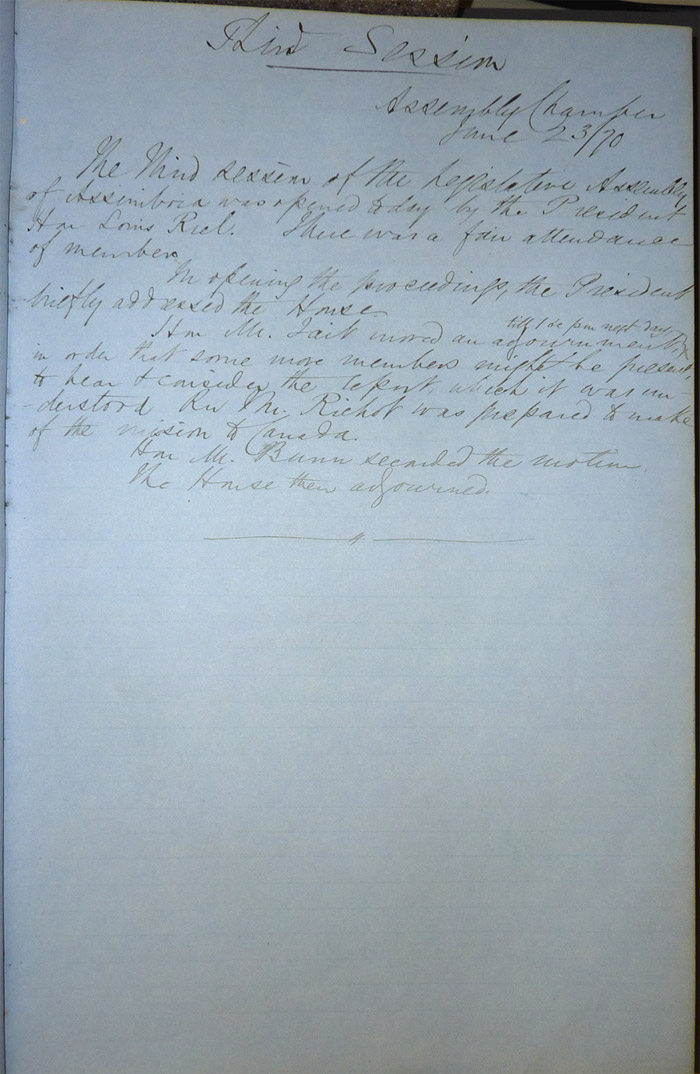 Third Session
Assembly Chamber
June 23/70
The Third session of the Legislative Assembly
of Assiniboia was opened today by the President
Hon Louis Riel. There was a fair attendance
of members.
In opening the proceedings, the President
briefly addressed the House.
till 1 pm next day
Hon Mr. Tait moved an adjournment,
in order that some more members might be present
to hear & consider the report, which it was un-
-derstood Rev Mr. Richot was prepared to make
of the mission to Canada.
Hon Mr. Bunn seconded the motion.
The House then adjourned.